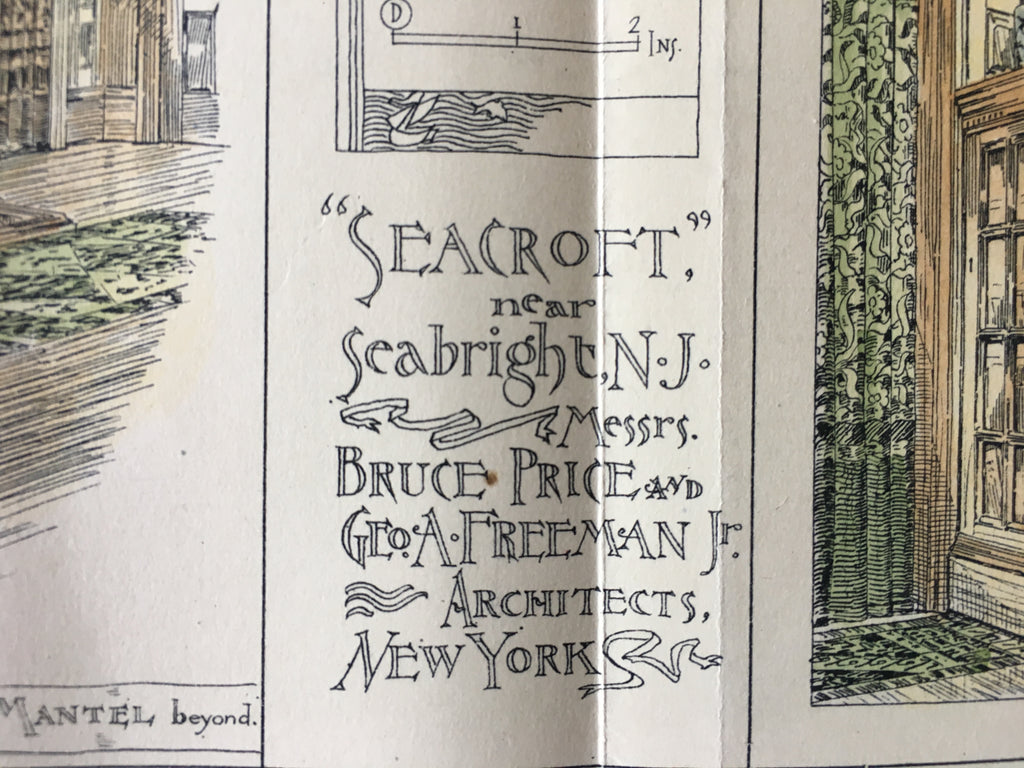 D
1 2 Ins.
"SEACROFT,"
near
Seabright, N.J.
Messrs.
BRUCE PRICE AND
GEO. A. FREEMAN Jr.
ARCHITECTS,
NEW YORK
MANTEL beyond.